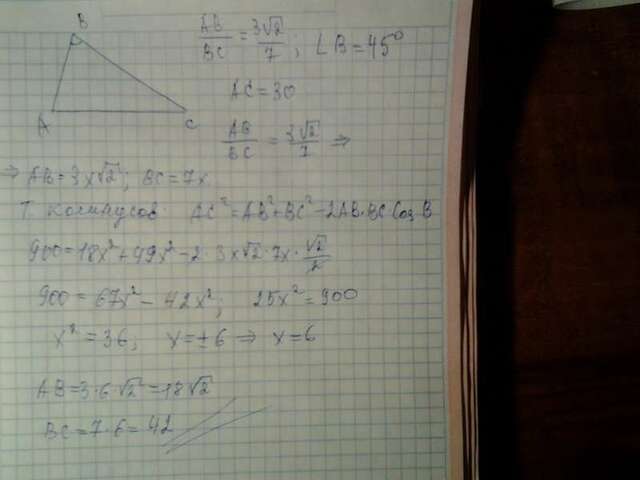 B
A
C
AB/BC = 3√2/7 ; ∠B = 45°
AC = 30
AB/BC = 3√2/7 ⇒
⇒ AB = 3x√2 ; BC = 7x
Т. косинусов AC² = AB² + BC² - 2AB·BC Cos B
900 = 18x² + 49x² - 2·3x√2·7x·√2/2
900 = 67x² - 42x² ; 25x² = 900
x² = 36 ; x = ±6 ⇒ x = 6
AB = 3·6·√2 = 18√2
BC = 7·6 = 42